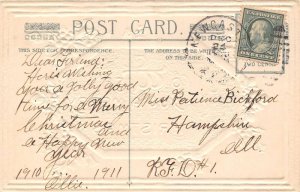 POST CARD.
THIS SIDE FOR CORRESPONDENCE.
ON THIS SIDE.
DEC
TWO CENTS
Dear Friend:
Here's wishing
you a jolly good
time for a Merry
Christmas and
a Happy New
Year
1910 1911
Ollie.
Miss Patience Bickford
Hampshire
Ill.
R.F.D. #1.